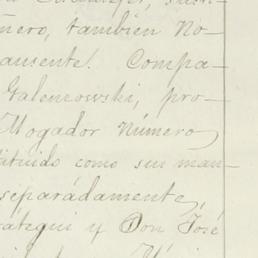 ñero, también No-
ausente. Compa-
Galencowski, pro-
Mogador Número
tituido como sus man-
separádamente,
rátegui y Don José